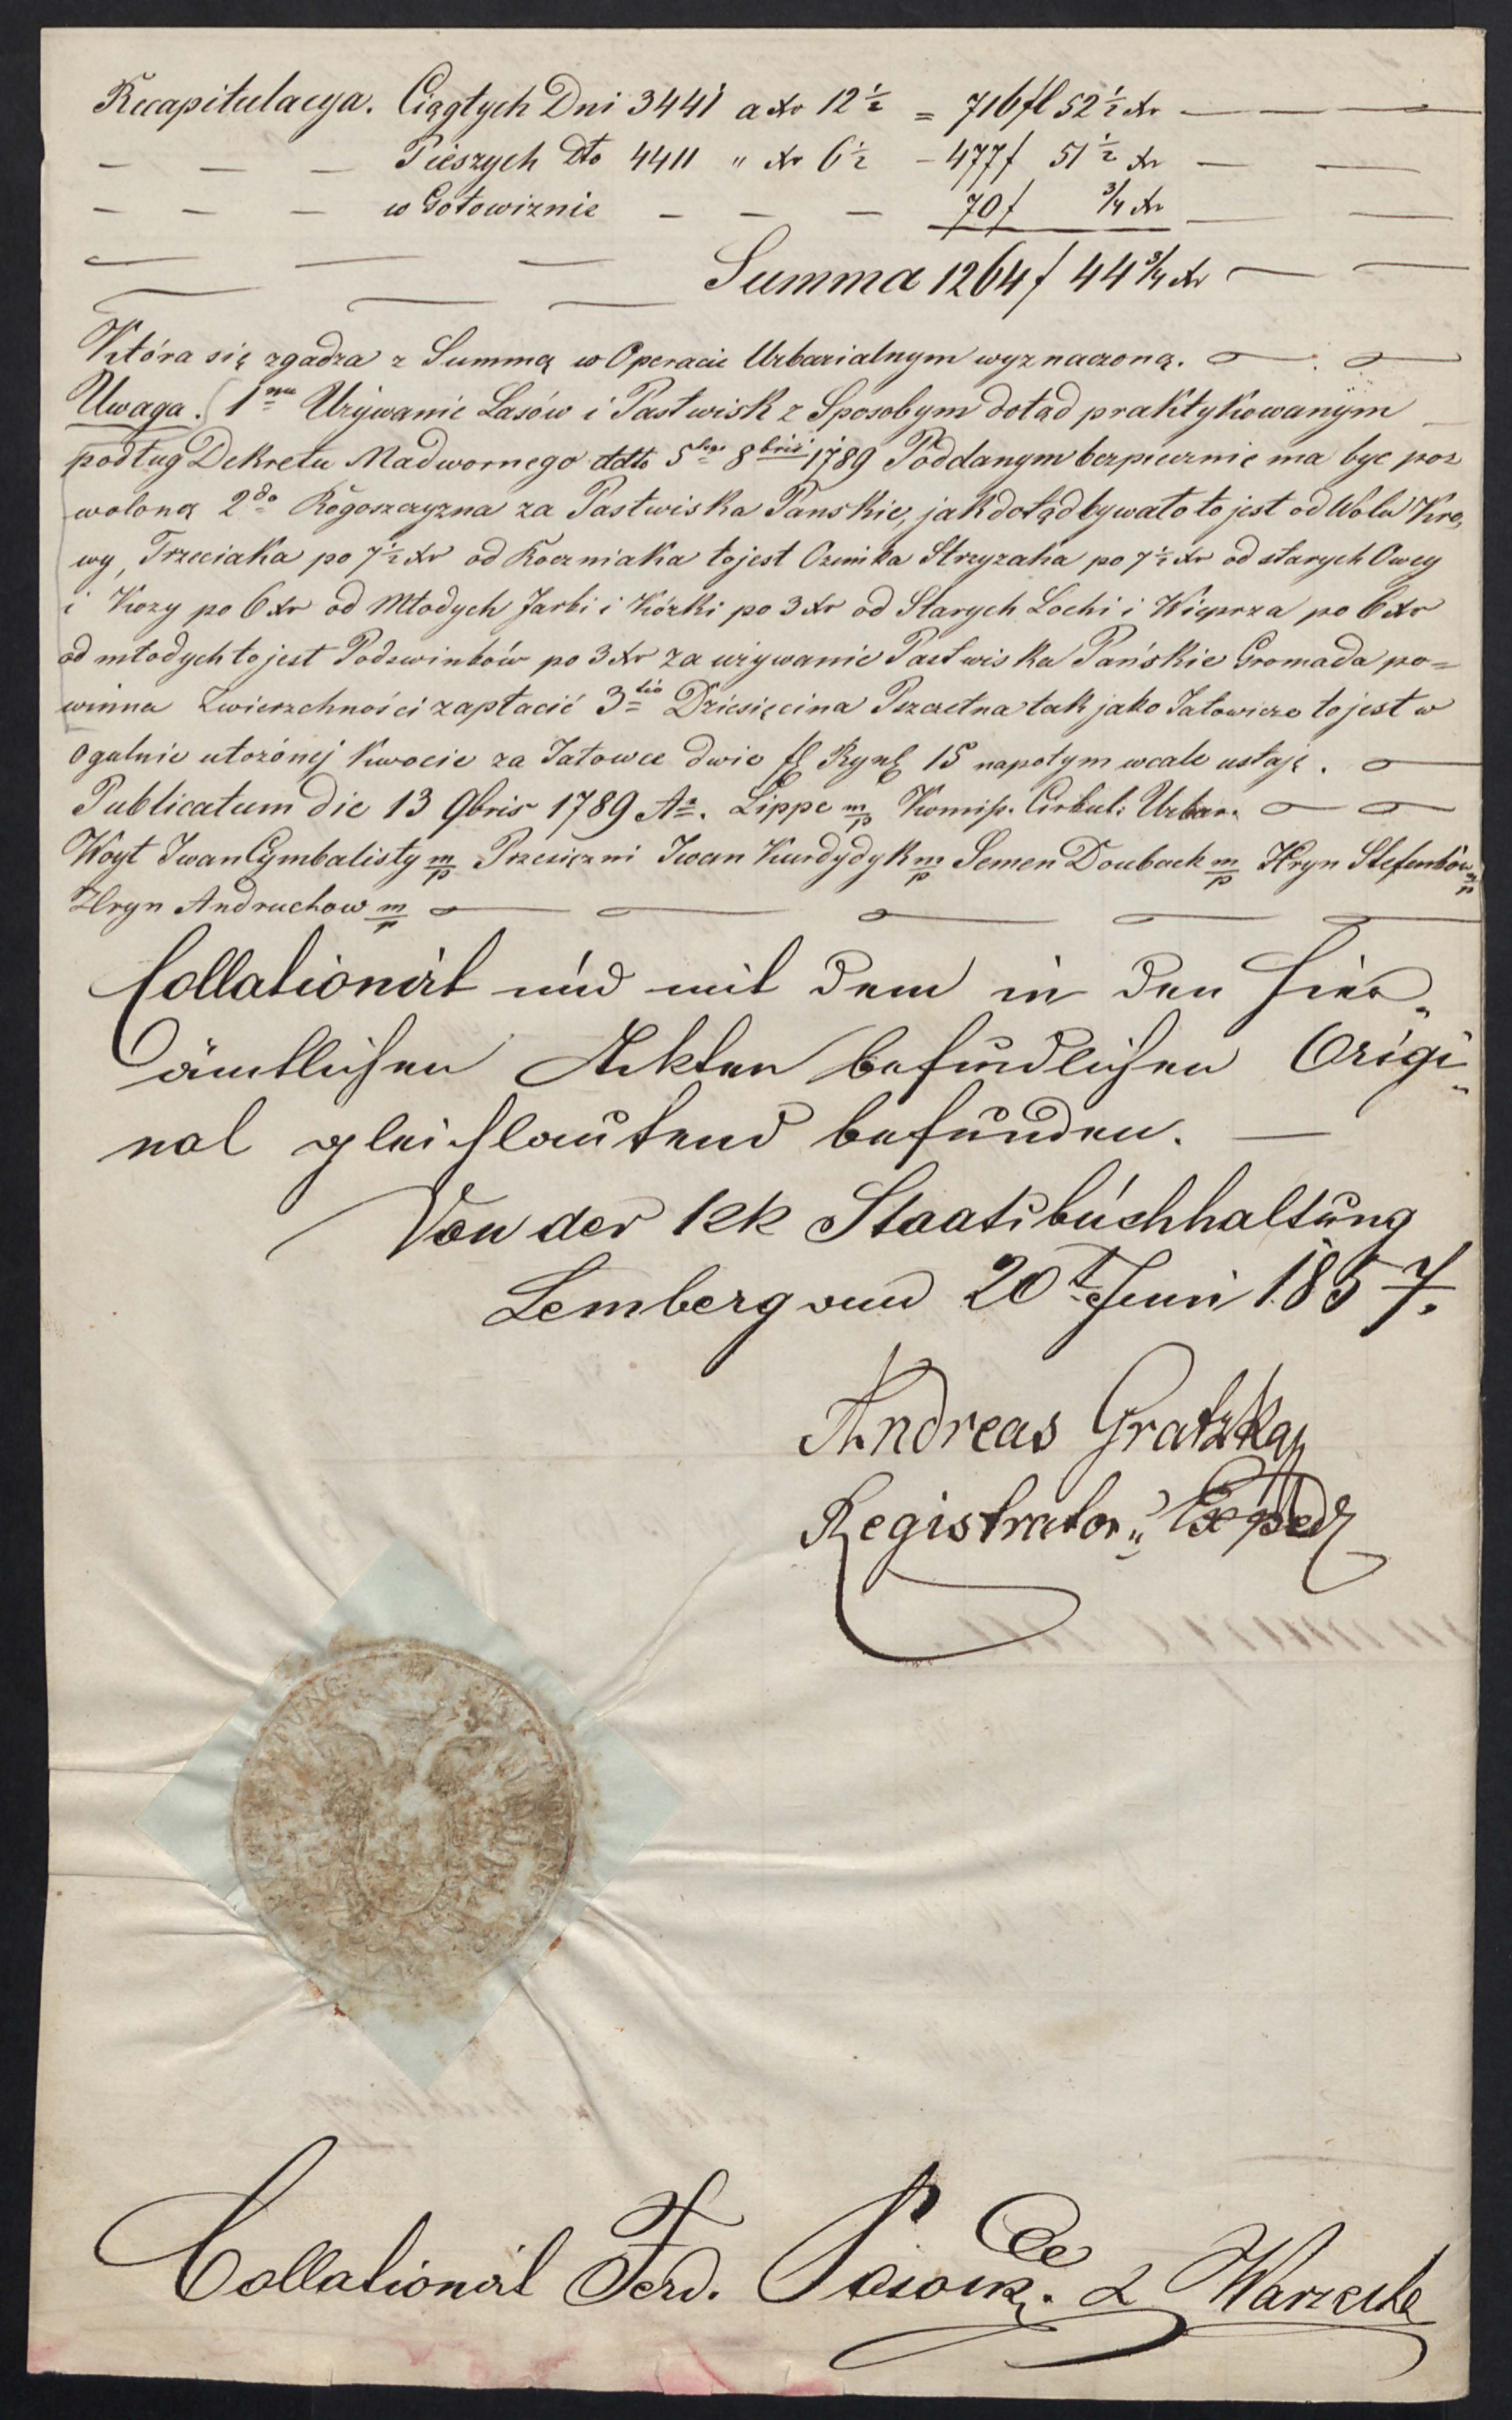 Recapitulacya. Ciągłych Dni 3441 a Xr 12 ½ = 716 fl 52 ½ Xr
Pieszych dto 4411 " Xr 6 ½ – 477 f 51 ½ Xr
w Gotowiznie – – – 70 f ¾ Xr
Summa 1264 f 44 ¾ Xr
Która się zgadza z Summą w Operacie Urbarialnym wyznaczoną.
Uwaga. 1mo Używanie Lasów i Pastwisk z Sposobym dotąd praktykowanym
podług Dekretu Nadwornego ddto 5tego 8bris 1789 Poddanym bezpiecznie ma być poz
woloną 2do Rogoszczyzna za Pastwiska Panskie, jak dotąd bywało to jest od Wołu Kro,
wy, Trzeciaka po 7 ½ Xr od Roczniaka to jest Ozimka Strzyzaka po 7 ½ Xr od starych Owcy
i Kozy po 6 Xr od Młodych Jarki i Kózki po 3 Xr od Starych Lochi i Wieprza po 6 Xr
od młodych to jest Podswinków po 3 Xr za używanie Pastwiska Pańskie Gromada po=
winna Zwierzchności zapłacić 3tio Dziesięcina Pszczelna tak jako Jałowicze to jest w
ogulnie ułożonéj Kwocie za Jałowce dwie fl Ryn 15 napotym wcale ustaję.
Publicatum die 13 9bris 1789 Ao. Lippe m/p Komiss. Cirkul: Urbar.
Woyt Iwan Cymbalisty m/p Przesiężni Iwan Kurdydyk m/p Semen Doubach m/p Hryn Stefanków m/p
Hryn Andruchow m/p
Collationirt und mit dem in den hier„
ämtlichen Akten befindlichen Origi„
nal gleichlautend befunden. —
Von der kk Staatsbuchhaltung
Lemberg am 20t Juni 1857.
Andreas Gratzka
Registrator„ Exped
Collationirt Ferd. & Warzecha